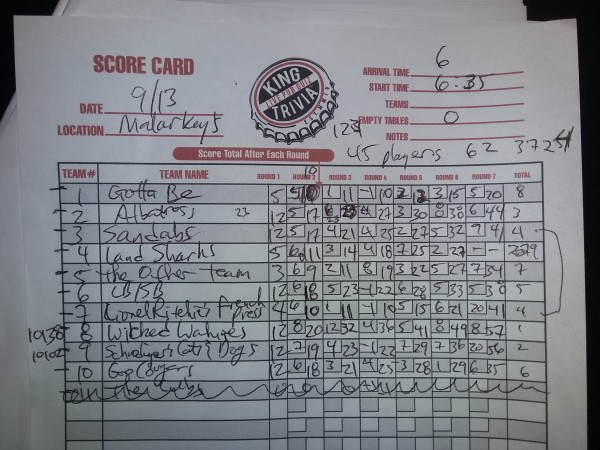 SCORE CARD
KING TRIVIA
LIVE PUB QUIZ
DATE 9/13
LOCATION Malarkey's
ARRIVAL TIME 6
START TIME 6:35
TEAMS
EMPTY TABLES 0
NOTES
45 players 62
Score Total After Each Round
TEAM # TEAM NAME ROUND 1 ROUND 2 ROUND 3 ROUND 4 ROUND 5 ROUND 6 ROUND 7 TOTAL
1 Gotta Be 5 5 10 1 11 -1 10 2 3 15 5 20 8
2 Albatross 23 12 5 17 4 27 3 30 8 38 6 44 3
3 Sandabs 12 5 17 4 21 4 25 2 27 5 32 9 4 4
4 Land Sharks 5 6 11 3 14 4 18 7 25 2 27 - - 9
5 the other team 3 6 9 2 11 8 19 3 22 5 27 7 34 7
6 LB/SB 12 6 18 5 23 -1 22 6 28 5 33 5 38 5
7 Lionel Ritchie's French Press 4 6 10 1 11 -1 10 5 15 6 21 20 41 4
8 Wicked 12 8 20 12 32 4 36 5 41 8 49 8 57 1
9 Cats & Dogs 12 7 19 4 23 -1 22 7 29 7 36 20 56 2
10 Cougars 12 6 18 3 21 4 25 3 28 1 29 6 35 6